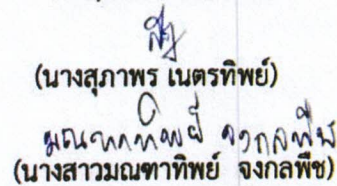 (นางสุภาพร เนตรทิพย์)
มณฑาทิพย์ จงกลพืช
(นางสาวมณฑาทิพย์ จงกลพืช)